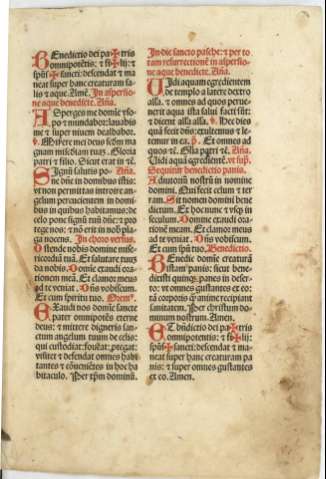 BEnedictio dei pa✠tris
omnipotẽtis: ⁊ fi✠lij: ⁊
spũs✠sancti: descendat ⁊ ma
neat super hanc creaturam sa-
lis ⁊ aque. Amẽ. In aspersio
ne aque benedicte. Aña.
ASperges me domĩe yso
po ⁊ mundabor: lauabis
me ⁊ super niuem dealbabor.
℣. Misere mei deus scđm ma
gnam miscďiam tuaȝ. Gloria
patri ⁊ filio. Sicut erat in ẽ.
SIgnũ salutis po- Aña.
ne dñe in domibus istis:
vt non permittas introire an-
gelum percucientem in domi
bus in quibus habitamus: de
celo pone signũ tuũ dñe: ⁊ pro
tege nos: ⁊ nõ erit in nob pla
ga nocens. In choro versus.
Ostende nobis domine mise
ricordiã tuã. Et salutare tuuȝ
da nobis. Domĩe exaudi ora
tionem meã. Et clamor meus
ad te veniat. Dñs vobiscum.
Et cum spiritu tuo.
EXaudi nos domĩe sancte
pater omnipotẽs eterne
deus: ⁊ mittere digneris san-
ctum angelum tuum de celis:
qui custodiat: foueat: ꝓtegat:
visitet ⁊ defendat omnes habi
tantes ⁊ cõueniẽtes in hoc ha
bitaculo. Per xp̃m dominũ.
In die sancto pasche: ⁊ per to
tam resurrectionẽ in aspersio
ne aque benedicte. Aña.
VIdi aquam egredientem
de templo a latere dextro
alla. ⁊ omnes ad quos perue-
nerit aqua ista salui facti sũt:
⁊ dicent alla alla. ℣. Hec dies
quã fecit dñs: exultemus ⁊ le-
temur in ea. Et omnes ad
quos ⁊ẽ. Gľia patri ⁊ẽ. Aña.
Uidi aquã egrediente. vt sup̃.
Sequitur benedictio panis.
ADiutoriũ nostrũ in nomine
domini. Qui fecit celum ⁊ ter
ram. Sit nomen domini bene
dictum. Ex hoc nunc ⁊ vsqȝ in
seculum. Domine exaudi ora-
tionẽ meam. Et clamor meus
ad te veniat. Dñs vobiscum.
Et cum spũ tuo. Benedictio.
BEnedic domĩe creaturã
istam panis: sicut bene-
dicisti quinqȝ panes in deser-
to: vt omnes gustantes ex eo:
tã corporis q̃ȝ anime recipiant
sanitatem. Per christum do-
minum nostrum. Amen.
ET bñdictio dei pa✠tris
omnipotentis: ⁊ fi✠lij:
spũs✠sancti: descendat ⁊ ma-
neat super hanc creaturam pa
nis: ⁊ super omnes gustantes
ex eo. Amen.